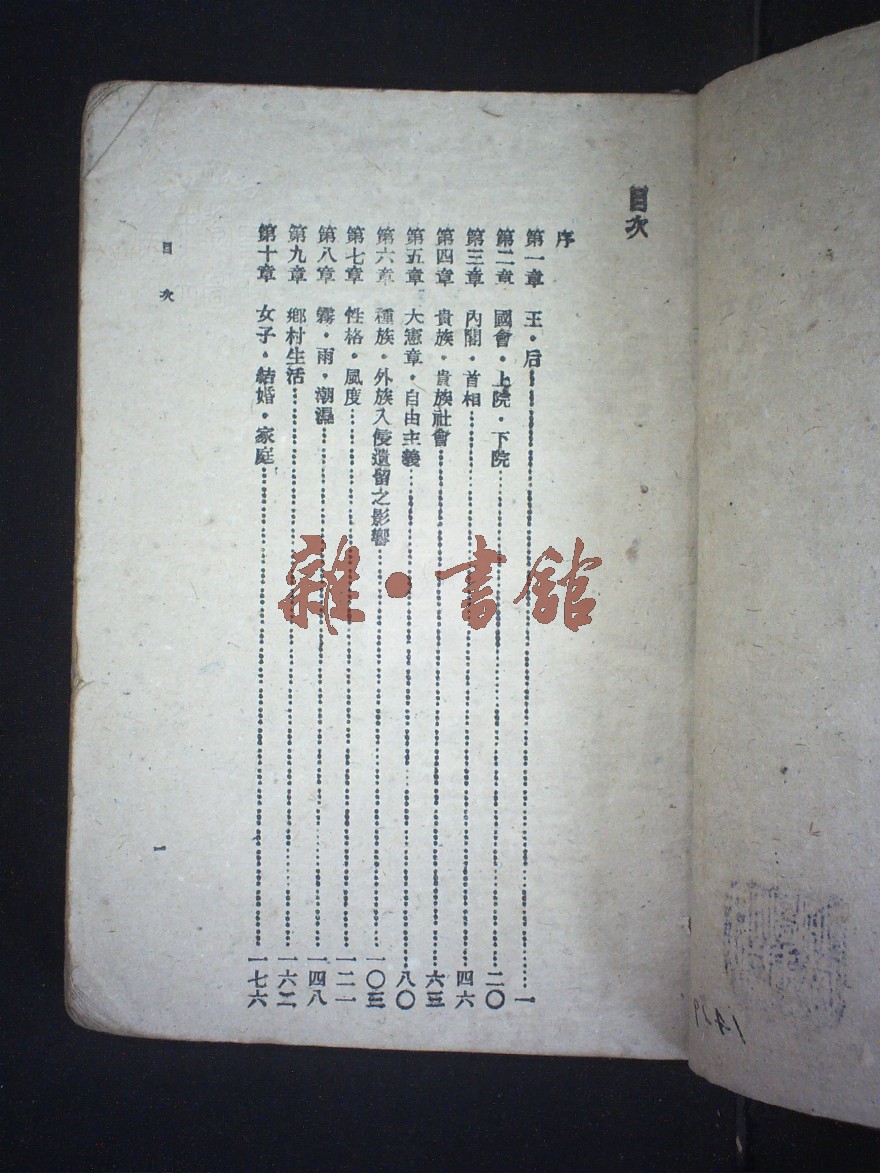 目次
序
第一章 王·后……一
第二章 國會·上院·下院……二〇
第三章 內閣·首相……四六
第四章 貴族·貴族社會……六三
第五章 大憲章·自由主義……八〇
第六章 種族·外族入侵遺留之影響……一〇三
第七章 性格·風度……一二一
第八章 霧·雨·潮濕……一四八
第九章 鄉村生活……一六二
第十章 女子·結婚·家庭……一七六
目次
一
雜·書館